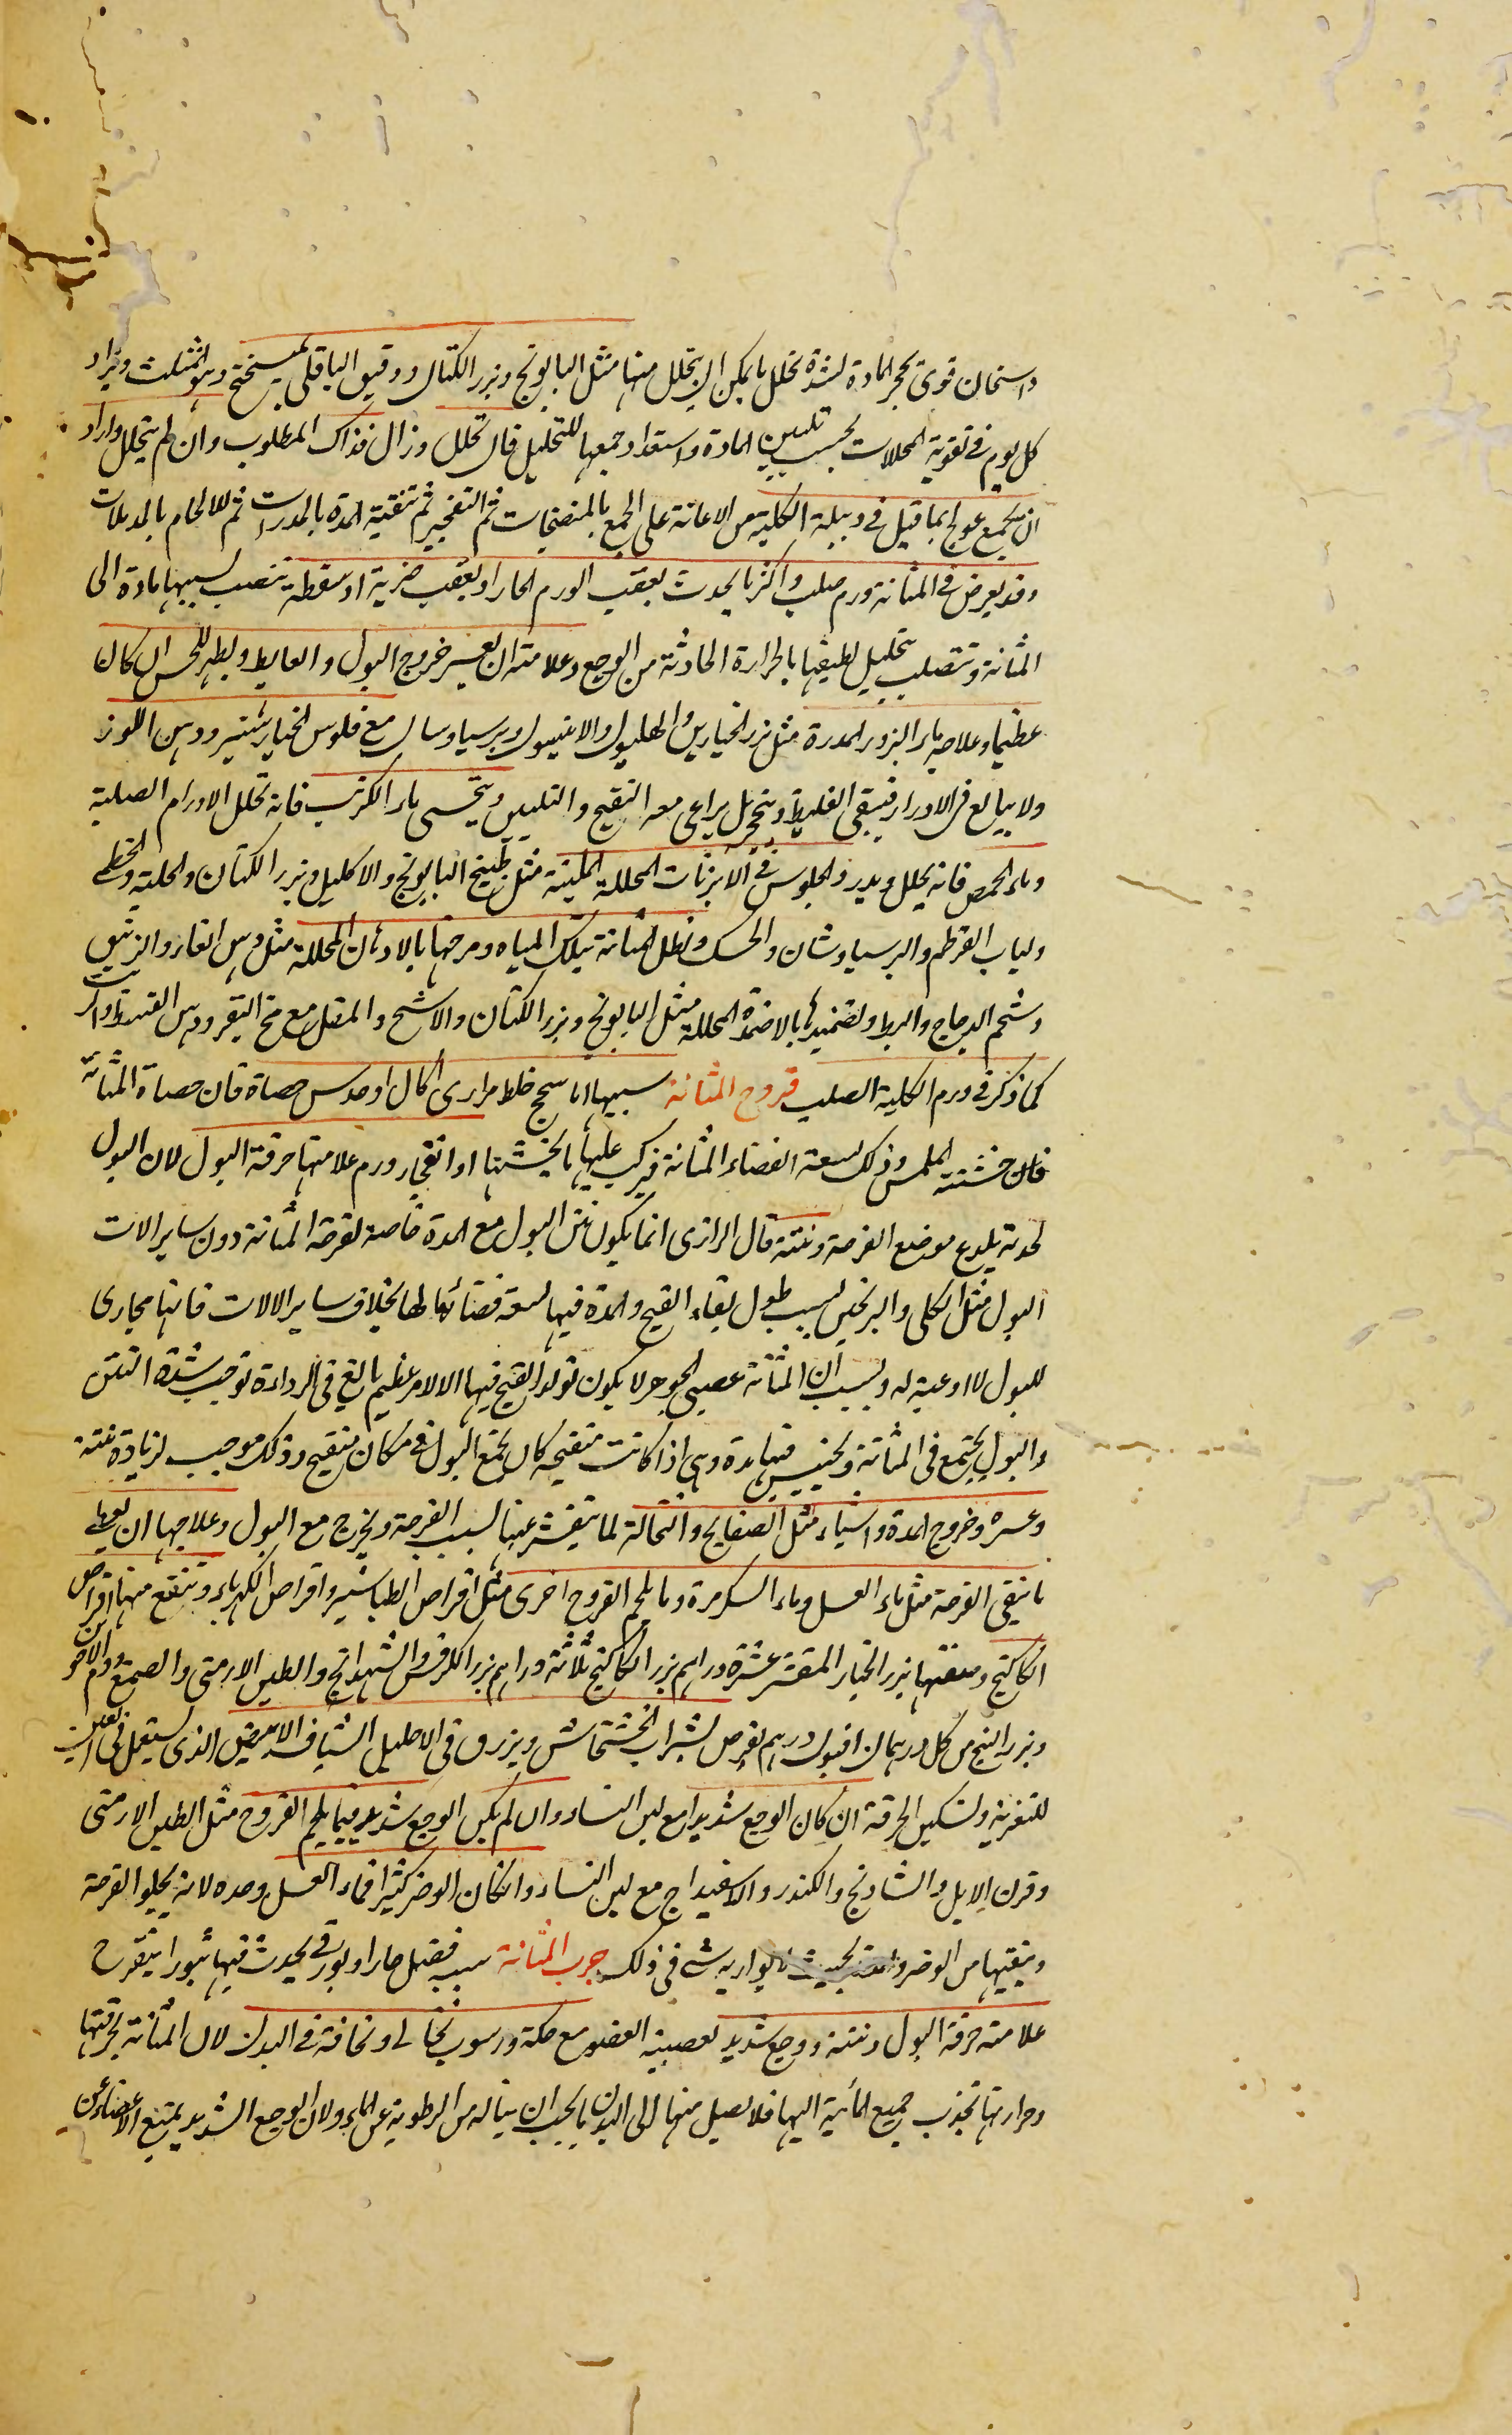 واسخان قوى يحجر المادة لشدة تحلل ما يمكن ان يتحلل منها مثل البابونج وبزر الكتان ودقيق الباقلى بميبختج وهو المثلث ويزاد
كل يوم فى تقوية المحللات بحسب تليين المادة واستعداد جمعها للتحليل فان تحلل وزال فذاك المطلوب وان لم يتحلل واراد
ان يجمع عولج بما قيل فى دبيلة الكلية من الاعانة على الجمع بالمنضجات ثم التفجير ثم تنقية المدة بالمدرات ثم للالحام بالمدملات
وقد يعرض فى المثانة ورم صلب واكثر ما يحدث بعقب الورم الحار او بعقب ضربة او سقطة تنصب بسببها مادة الى
المثانة وتتصلب بتحليل لطيفها بالحرارة الحادثة من الوجع وعلامته ان يعسر خروج البول والغايط ويظهر للحس ان كان
عظيما وعلاجه ماء البزور المدرة مثل بزر الخيارين والهليون والانيسون وبرسياوسان مع فلوس الخيارشنبر ودهن اللوز
ولا يبالغ فى الادرار فيبقى الغليظ ويتحجر بل يراعى معه النضج والتليين ويتحسى ماء الكرنب فانه تحلل الاورام الصلبة
وماء الحمص فانه يحلل ويدر والجلوس فى الابزنات المحللة الملينة مثل طبيخ البابونج والاكليل وبزر الكتان والحلبة والخطمى
ولباب القرطم والبرسياوشان والحسك ونطل المثانة بتلك المياه ومرخها بالادهان المحللة مثل دهن الغار والزنبق
وشحم الدجاج والبط وتضميدها بالاضمدة المحللة مثل البابونج وبزر الكتان والاشج والمقل مع مخ البقر ودهن القسط والزيت
كما ذكر فى ورم الكلية الصلب قروح المثانة سببها اما سحج خلط مرارى اكال او خدش حصاة فان حصاة المثانة
فان خشنته الملمس وذلك لسعة الفضاء المثانة فيركب عليها ما يخشنها او انفجار ورم علامتها حرقة البول لان البول
لحدته يلدع موضع القرحة ونتنه قال الرازى انما يكون نتن البول مع المدة خاصة لقرحة المثانة دون ساير الات
البول مثل الكلى والبربخين بسبب طول بقاء القيح والمدة فيها لسعة فضائها لها بخلاف ساير الالات فانها مجارى
للبول لا اوعية له وبسبب ان المثانة عصبى الجوهر لا يكون تولد القيح فيها الا لامر عظيم بالغ فى الرداءة توجب شدة النتن
والبول يجتمع فى المثانة ويحتبس فيها مدة وهى اذا كانت متقيحة كان يجمع البول فى مكان متقيح وذلك موجب لزيادة نتنه
وعسره وخروج المدة واشياء مثل الصفايح والنخالة لما يتقشر عنها بسبب القرحة ويخرج مع البول وعلاجها ان يعطى
ما ينقى القرحة مثل ماء العسل وماء السكر مرة وما يلحم القروح اخرى مثل اقراص الطباشير واقراص الكهرباء وينفع منها اقراص
الكاكنج وصفتها بزر الخيار المقشر عشرة دراهم بزر الكاكنج ثلاثة دراهم بزر الكرفس والشهدانج والطين الارمنى والصمغ ودم الاخوين
وبزر البنج من كل درهمان افيون درهم يقرص بشراب الخشخاش ويزرق فى الاحليل الشياف الابيض الذى يستعمل فى العين
للتغرية وتسكين الحرقة ان كان الوجع شديدا مع لبن النساء وان لم يكن الوجع شديد فبما يلحم القروح مثل الطين الارمنى
وقرن الايل والشادنج والكندر والاسفيداج مع لبن النساء وان كان الوضر كثيرا فماء العسل وحده لانه يجلوا القرحة
وينقيها من الوضر فى ذلك جرب المثانة سبب فضل حار او بورقى يحدث فيها بثورا يتقرح
علامته حرقة البول ونتنه ووجع شديد لعصبية العضو مع حكة ورسوب نخالى ونحافة فى البدن لان المثانة بحرقتها
وحرارتها تجذب جميع المائية اليها فلا يصل منها الى البدن ما يجب ان يناله من الرطوبة عن الماء ولان الوجع الشديد يمنع الاعضاء عن